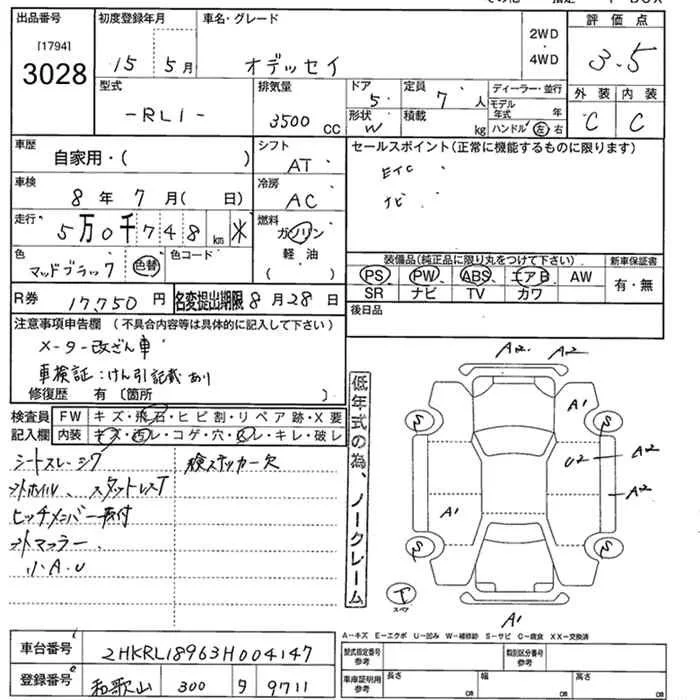 出品番号
[1794]
3028
初度登録年月
15 5月
車名・グレード
オデッセイ
2WD
・
4WD
評価点
3.5
型式
-RL1-
排気量
3500 CC
ドア
5
形状 W
定員
7 人
積載 kg
ディーラー・並行
モデル年式 年
ハンドル 左 右
外装 内装
C C
車歴
自家用・( )
シフト
AT
セールスポイント(正常に機能するものに限ります)
ETC
ナビ
車検
8 年 7 月( 日)
冷房
AC
走行
5万0千748 km ※
燃料
ガソリン
軽油
( )
色
マッドブラック 色替
色コード
装備品(純正品に限り丸をつけて下さい)
PS PW ABS エアB AW
SR ナビ TV カワ
新車保証書
有・無
R券
17,750 円
名変提出期限 8月28日
後日品
注意事項申告欄 (不具合内容等は具体的に記入して下さい)
メーター改ざん車
車検証:けん引記載あり
修復歴 有 〔箇所 〕
検査員記入欄
FW キズ・飛石・ヒビ割・リペア跡・X要
内装 キズ・汚レ・コゲ・穴・スレ・キレ・破レ
シートスレ 検ステッカー欠
スタットレスT
ヒッチメンバー
マフラー
小A・U
低年式の為、ノークレーム
A2 A2
A1
S
S
U2
A2
A2
A1
S
S
T
スペア
A1
A-キズ E-エクボ U-凹み W-補修跡 S-サビ C-腐食 XX-交換済
車台番号
2HKRL18963H004147
登録番号
和歌山 300 9711
型式指定番号 参考
類別区分番号 参考
車庫証明用 参考
長さ cm
幅 cm
高さ cm